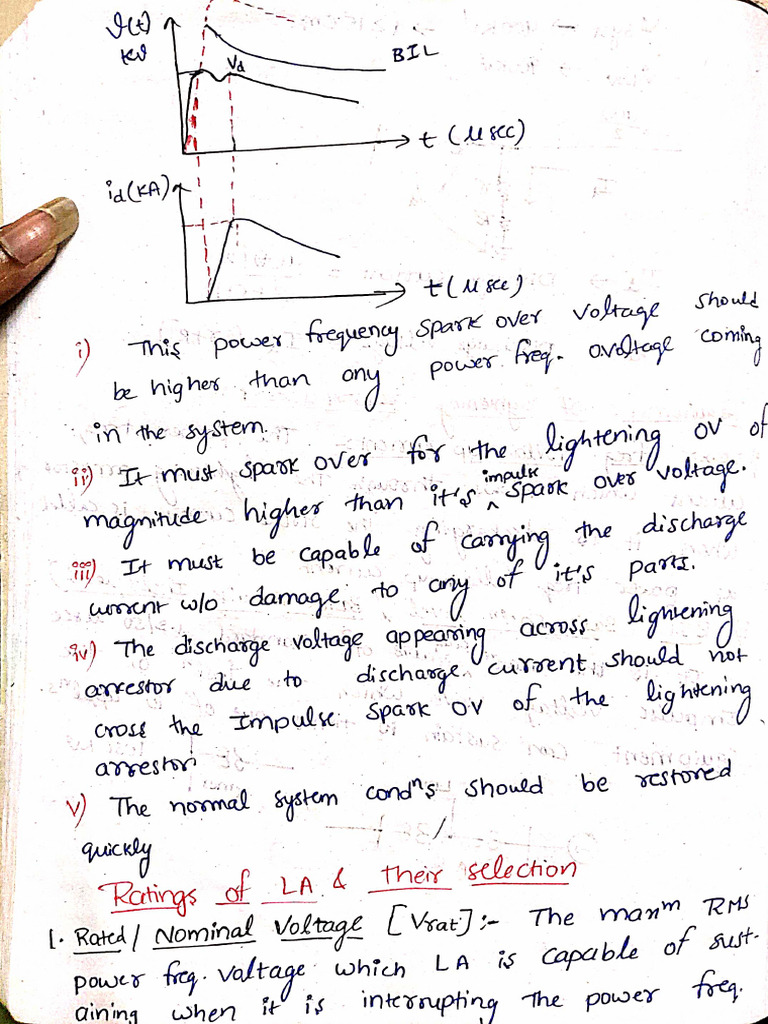 v(t)
kv
Vd
BIL
t (μsec)
id(KA)
t (μsec)
i) This power frequency spark over voltage should
be higher than any power freq. ovoltage coming
in the system.
ii) It must spark over for the lightening OV of
magnitude higher than it's impulse spark over voltage.
iii) It must be capable of carrying the discharge
current w/o damage, to any of it's parts.
iv) The discharge voltage appearing across lightening
arrestor due to discharge current, should not
cross the Impulse spark OV of the lightening
arrestor
v) The normal system condⁿs should be restored
quickly
Ratings of LA & their selection
1. Rated/ Nominal Voltage [Vrat] :- The maxᵐ RMS
power freq. voltage which LA is capable of sust-
aining when it is interrupting the power freq.